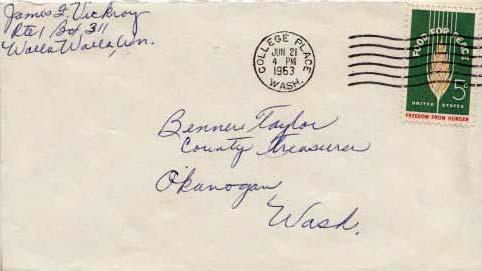 James F. Vickroy
Rte 1 Box 311
Walla Walla, Wn.
COLLEGE PLACE
JUN 21
4 PM
1963
WASH.
FOOD FOR PEACE
5¢
UNITED STATES
FREEDOM FROM HUNGER
Taylor
County Treasurer
Okanogan,
Wash.